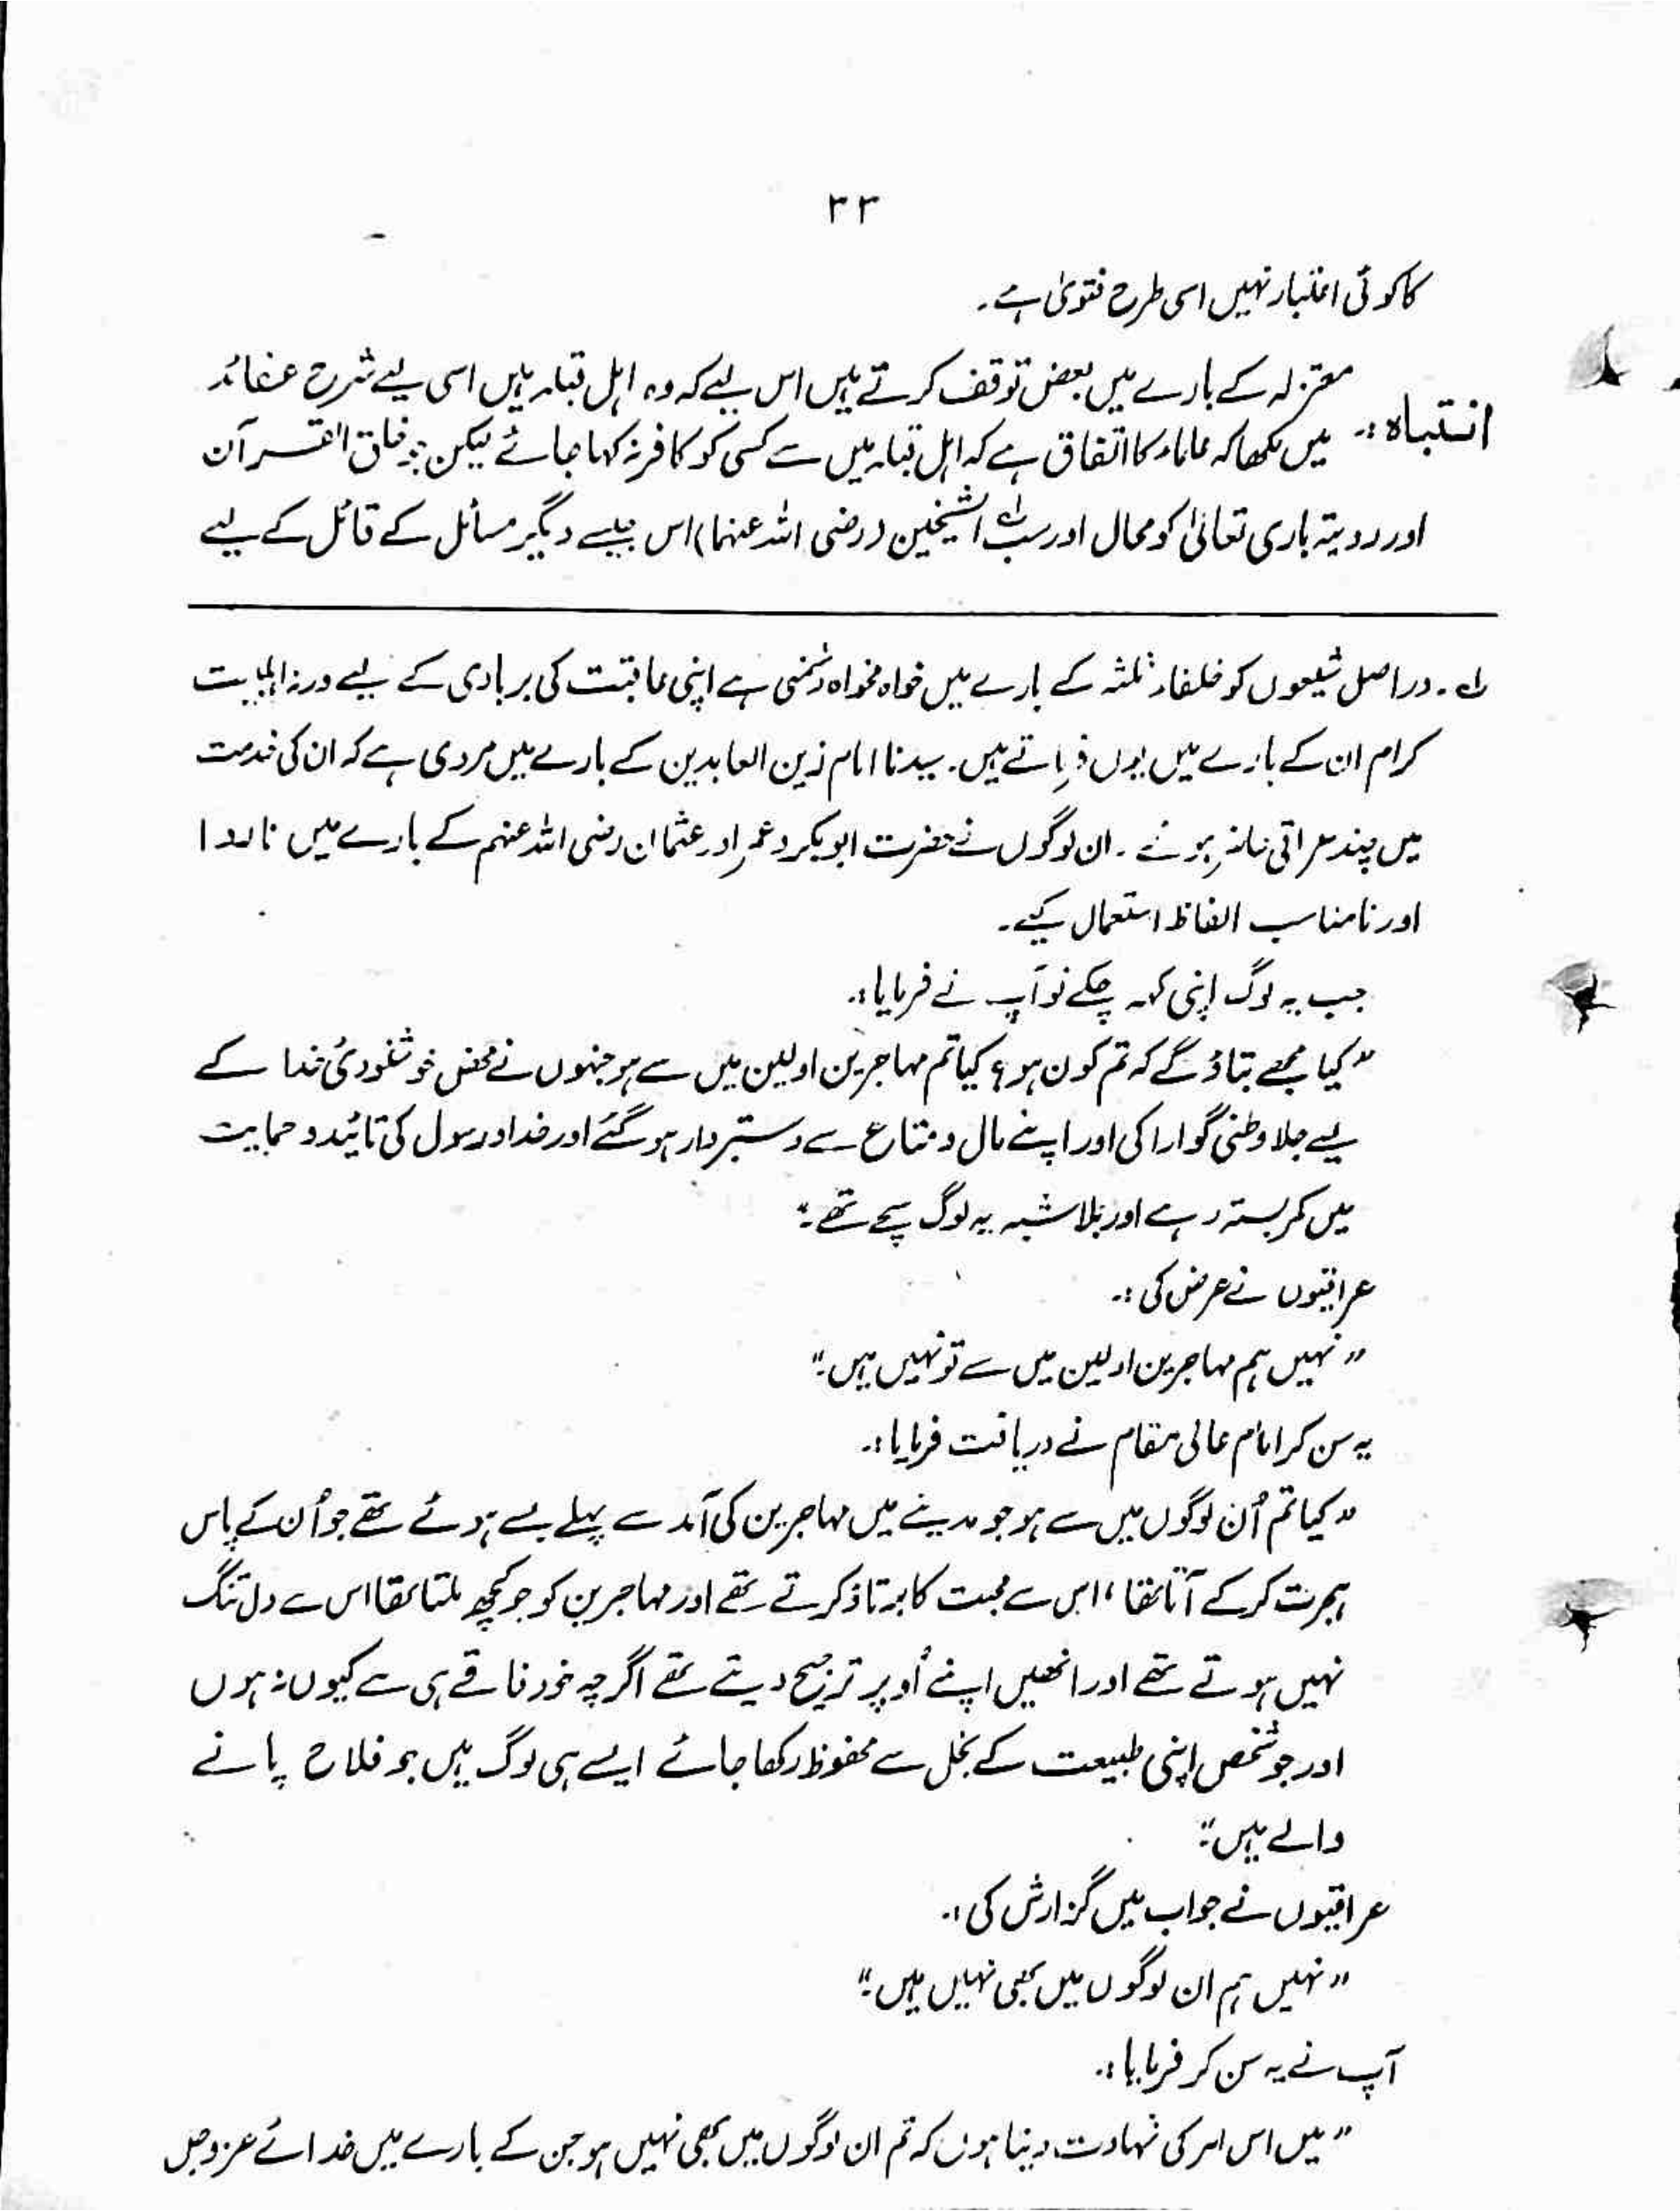 ۳۳
کا کوئی اعتبار نہیں اسی طرح فتویٰ ہے۔
معتزلہ کے بارے میں بعض توقف کرتے ہیں اس لیے کہ وہ اہل قبلہ ہیں اسی لیے شرح عقائد
انتباہ :۔ میں لکھا کہ علماء کا اتفاق ہے کہ اہل قبلہ میں سے کسی کو کافر نہ کہا جائے لیکن بخلق القرآن
اور رویۃ باری تعالیٰ کو محال اور سبّ الشیخین (رضی اللہ عنہما) اس جیسے دیگر مسائل کے قائل کے لیے
لہ۔ دراصل شیعوں کو خلفاء ثلثہ کے بارے میں خواہ مخواہ دشمنی ہے اپنی عاقبت کی بربادی کے لیے ورنہ اہلبیت
کرام ان کے بارے میں یوں فرماتے ہیں۔ سیدنا امام زین العابدین کے بارے میں مروی ہے کہ ان کی خدمت
میں چند عراقی حاضر ہوئے۔ ان لوگوں نے حضرت ابوبکر و عمر اور عثمان رضی اللہ عنہم کے بارے میں ناروا
اور نامناسب الفاظ استعمال کیے۔
جب یہ لوگ اپنی کہہ چکے تو آپ نے فرمایا :۔
"کیا مجھے بتاؤ گے کہ تم کون ہو؟ کیا تم مہاجرین اولین میں سے ہو جنہوں نے محض خوشنودیٔ خدا کے
لیے جلا وطنی گوارا کی اور اپنے مال و متاع سے دستبردار ہو گئے اور خدا و رسول کی تائید و حمایت
میں کمربستہ رہے اور بلاشبہ یہ لوگ سچے تھے۔"
عراقیوں نے عرض کی :۔
"نہیں ہم مہاجرین اولین میں سے تو نہیں ہیں۔"
یہ سن کر امام عالی مقام نے دریافت فرمایا :۔
"کیا تم اُن لوگوں میں سے ہو جو مدینے میں مہاجرین کی آمد سے پہلے بسے ہوئے تھے جو اُن کے پاس
ہجرت کر کے آتا تھا، اس سے محبت کا برتاؤ کرتے تھے اور مہاجرین کو جو کچھ ملتا تھا اس سے دل تنگ
نہیں ہوتے تھے اور انھیں اپنے اُوپر ترجیح دیتے تھے اگرچہ خود فاقے ہی سے کیوں نہ ہوں
اور جو شخص اپنی طبیعت کے بخل سے محفوظ رکھا جائے ایسے ہی لوگ ہیں جو فلاح پانے
والے ہیں۔"
عراقیوں نے جواب میں گزارش کی :۔
"نہیں ہم ان لوگوں میں بھی نہیں ہیں۔"
آپ نے یہ سن کر فرمایا :۔
"میں اس امر کی شہادت دیتا ہوں کہ تم ان لوگوں میں بھی نہیں ہو جن کے بارے میں خدائے عزوجل